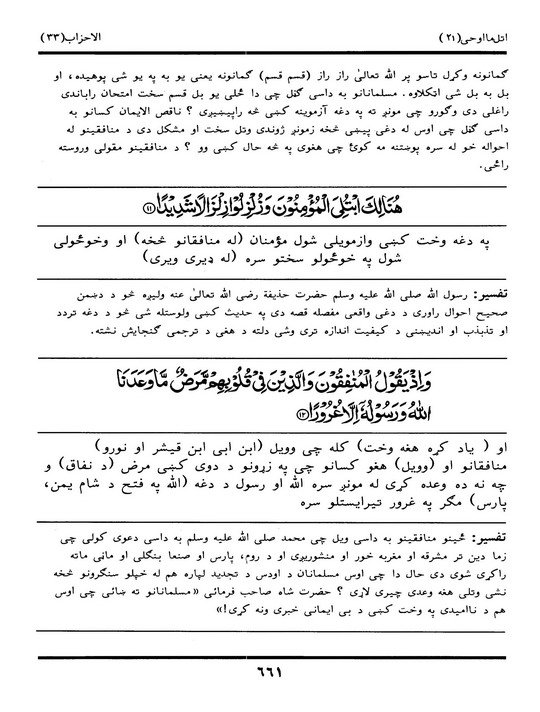 اتل مااوحی(۲۱) الاحزاب(۳۳)
ګمانونه وکړل تاسو پر الله تعالیٰ راز راز (قسم قسم) ګمانونه یعنی یو به په یو شی پوهیده، او
بل به بل شی اټکلاوه. مسلمانانو به داسی ګڼل چی دا ځلی یو بل قسم سخت امتحان رابانډی
راغلی دی وګورو چی مونږ ته په دغه آزموینه کښی څه راپیښیږی؟ ناقص الایمان کسانو به
داسی ګڼل چی اوس له دغی پیښی څخه زمونږ ژوندی وتل سخت او مشکل دی د منافقینو له
احواله خو له سره پوښتنه مه کوئ چی هغوی په څه حال کښی وو؟ د منافقینو مقولی وروسته
راځی.
هُنَالِكَ ابْتُلِیَ الْمُؤْمِنُوْنَ وَزُلْزِلُوْا زِلْزَالًا شَدِیْدًا ۝۱۱
په دغه وخت کښی وازمویلی شول مؤمنان (له منافقانو څخه) او وخوځولی
شول په خوځولو سختو سره (له ډیری ویری)
تفسیر: رسول الله صلی الله علیه وسلم حضرت حذیفة رضی الله تعالیٰ عنه ولیږه څو د دښمن
صحیح احوال راوړی د دغی واقعی مفصله قصه دی په حدیث کښی ولوستله شی څو د دغه تردد
او تذبذب او اندیښنی د کیفیت اندازه تری وشی دلته د هغی د ترجمی ګنجایش نشته.
وَاِذْ یَقُوْلُ الْمُنٰفِقُوْنَ وَالَّذِیْنَ فِیْ قُلُوْبِهِمْ مَّرَضٌ مَّا وَعَدَنَا
اللّٰهُ وَرَسُوْلُهٗۤ اِلَّا غُرُوْرًا ۝۱۲
او ( یاد کړه هغه وخت) کله چی وویل (ابن ابی ابن قیشر او نورو)
منافقانو او (وویل) هغو کسانو چی په زړونو د دوی کښی مرض (د نفاق) و
چه نه ده وعده کړی له مونږ سره الله او رسول د دغه (الله په فتح د شام یمن،
پارس) مګر په غرور تیرایستلو سره
تفسیر: ځینو منافقینو به داسی ویل چی محمد صلی الله علیه وسلم به داسی دعوی کولی چی
زما دین تر مشرقه او مغربه خور او منشوریږی او د روم، پارس او صنعا بنګلی او ماڼی ماته
راکړی شوی دی حال دا چی اوس مسلمانان د اودس د تجدید لپاره هم له خپلو سنګرونو څخه
نشی وتلی هغه وعدی چیری لاړی؟ حضرت شاه صاحب فرمائی «مسلمانانو ته ښائی چی اوس
هم د ناامیدی په وخت کښی د بی ایمانی خبری ونه کړی!»
۶۶۱